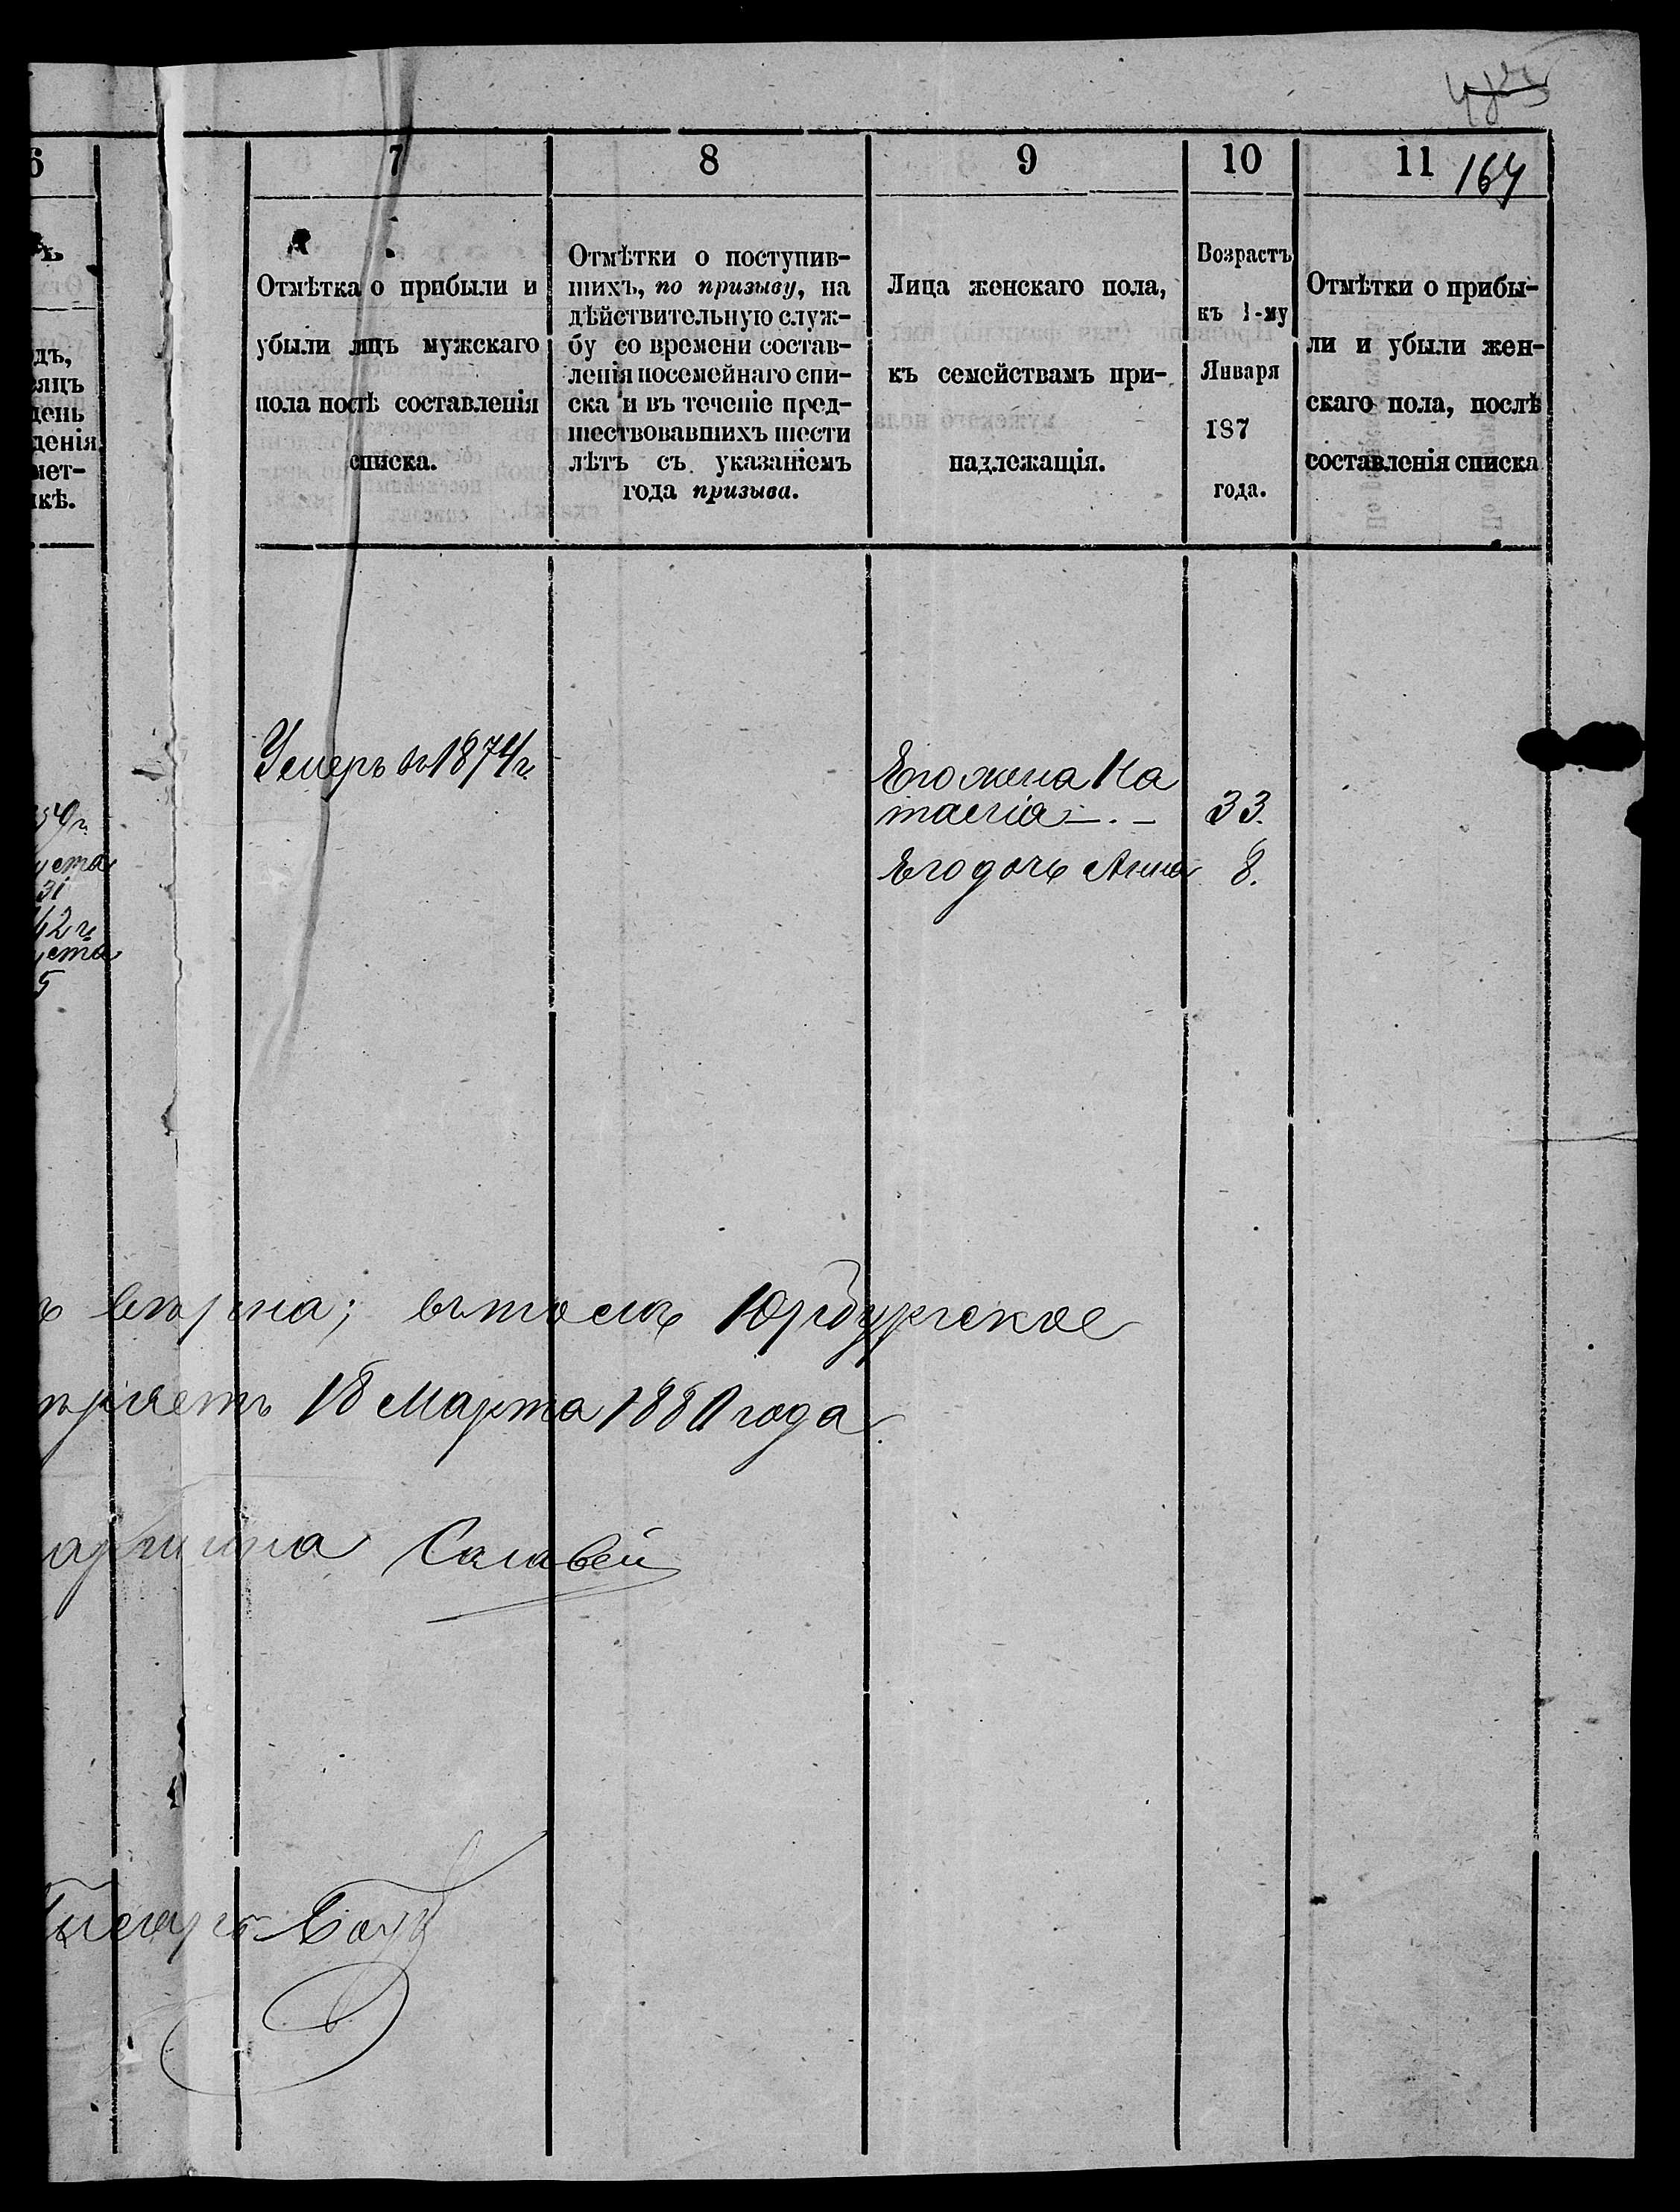 6
7
8
9
10
11
164
ъ
дъ,
сяцъ
день
денія
мет-
кѣ.
Отмѣтка о прибыли и
убыли лицъ мужскаго
пола послѣ составленія
списка.
Отмѣтки о поступив-
шихъ, по призыву, на
дѣйствительную служ-
бу со времени состав-
ленія посемейнаго спи-
ска и въ теченіе пред-
шествовавшихъ шести
лѣтъ съ указаніемъ
года призыва.
Лица женскаго пола,
къ семействамъ при-
надлежащія.
Возрастъ
къ 1-му
Января
187
года.
Отмѣтки о прибы-
ли и убыли жен-
скаго пола, послѣ
составленія списка
59 г.
уста
31
42 г.
уста
5
Умеръ въ 1874 г.
Его жена На
талія
33.
Его дочь Анна
8.
ъ вѣрна; въ томъ Юрбургское
ѣряетъ 18 Марта 1880 года
аршина Салавей
Писарь